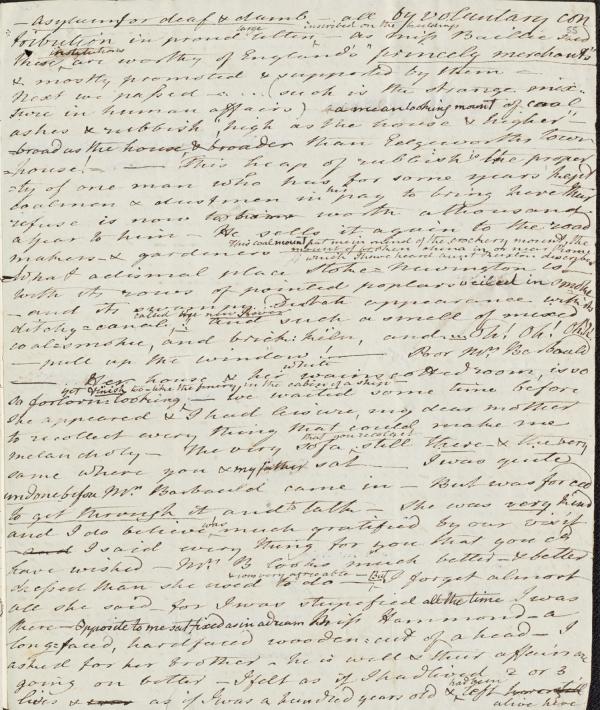 – asylum for deaf & dumb – all by voluntary con
55
large inscribed on the buildings
tribution in proud letters – as Miss Baillie said
institutions
These are worthy of England's "princely merchants
& mostly promoted & supported by them –
Next we passed – ... (such is the strange mix-
ture in human affairs) a mean looking mount of coal
ashes & rubbish "high as the house & higher"
broad as the house & broader than Edgeworths Town
house! – — This heap of rubbish is the proper
ty of one man who has for some years kept
his
coalmen & dustmen in pay to bring here their
refuse is now worth a thousand
a year to him – He sells it again to the road
This coal mount put me in mind of the
makers & gardeners
which I have heard aunt Ruxton describe
What a dismal place Stoke-Newington is
with its rows of pointed poplars veiled in smoke
– and its Dutch appearance with its
called the new River
ditchy-canal, and such a smell of mixed
coalesmoke, and brick-kiln, and – Oh! Oh! Oh!!!
– pull up the window! — Poor Mrs Barbauld
white
– Her house & her wainscotted room, is so
yet like the priory in the cabin of a ship –
so forlorn looking – we waited some time before
she appeared & I had leisure, my dear mother
to recollect every thing that could make me
that you recollect
melancholy – The very sofa still there – & the very
same where you & my father sat – I was quite
undone before Mrs Barbauld came in – But was forced
to get through it and to talk – She was very kind
was
and I do believe much gratified by our visit
– I said every thing for you that you cd
have wished – Mrs B looks much better & better
& was very agreeable – But
dressed than she used to do – I forget almost
all she said – for I was stupefied all the time I was
there – Opposite to me sat fixed as in a dream Miss Hammond – a
longfaced, hardfaced wooden-cut of a head – I
asked for her brother – he is well & their affairs are
going on better – I felt as if I had lived 2 or 3
had been
lives & as if I was a hundred years old & left
alive here